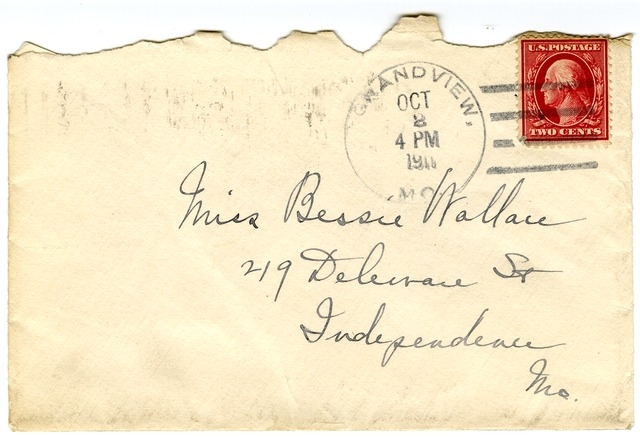 U.S. POSTAGE
TWO CENTS
GRANDVIEW,
OCT
2
4 PM
1911
MO.
Miss Bessie Wallace
219 Deleware St
Independence
Mo.